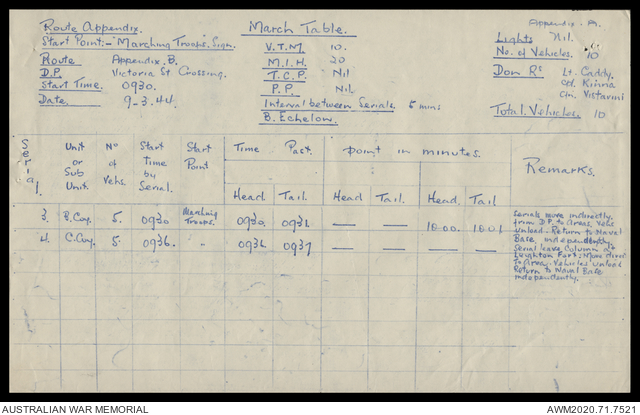 Route Appendix.
Start Point:- "Marching Troops" Sign.
Route Appendix. B.
D.P. Victoria St Crossing.
Start Time. 0930.
Date. 9-3.44.
March Table.
V.T.M. 10.
M.I.H. 20
T.C.P. Nil
P.P. Nil.
Interval between Serials. 5 mins
B. Echelon.
Appendix. A.
Lights Nil.
No. of Vehicles. 10
Don Rs Lt. Caddy.
Cpl. Kinna
Cfn. Vistarini
Total. Vehicles. 10
Serial. Unit or Sub Unit. No of Vehs. Start Time by Serial. Start Point Time Past. point in minutes. Remarks.
Head. Tail. Head Tail. Head Tail
3. B.Coy. 5. 0930 Marching Troops. 0930. 0931. — — 1000. 1001
4. C.Coy. 5. 0936. " 0936 0937 — —
Serials move indirectly
from D.P. to Areas, Vehs
unload - Return to Naval
Base, independently.
Serial leave Column at
Leighton Fort: Move direct
To Area. Vehicles unload
Return to Naval Base
independently.
AUSTRALIAN WAR MEMORIAL
AWM2020.71.7521